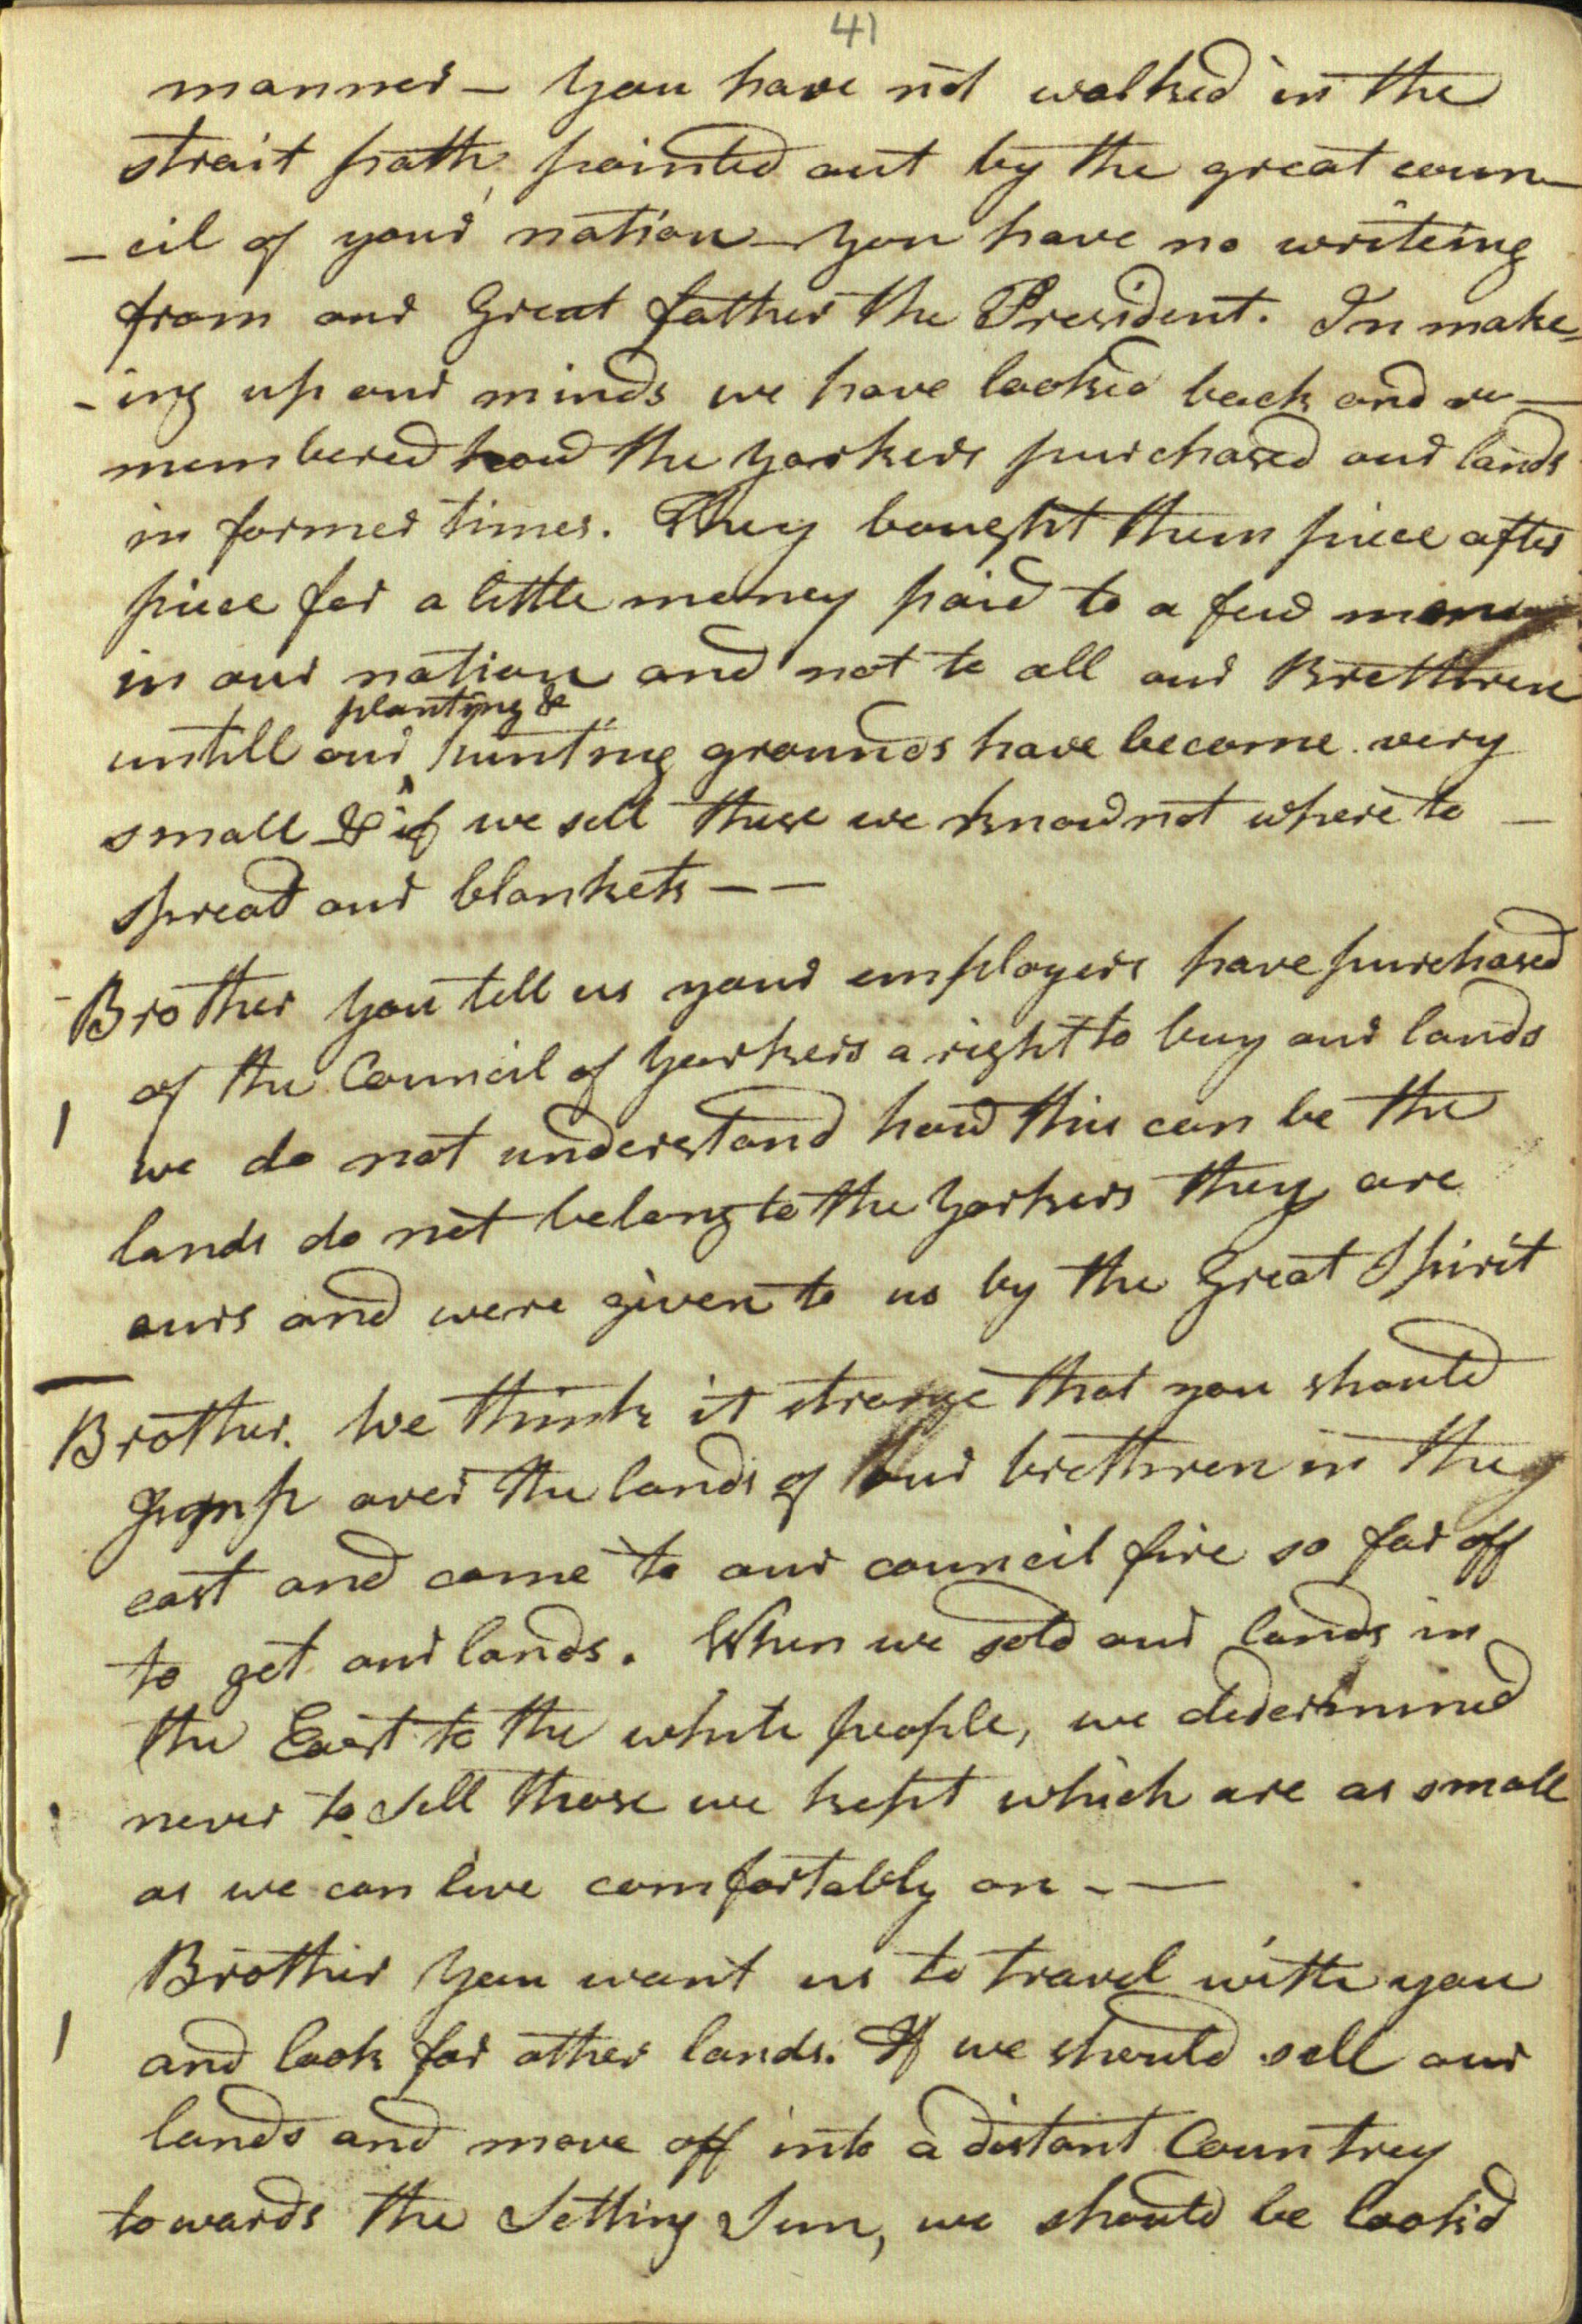 41
manner - You have not walked in the
strait path, pointed out by the great coun-
-cil of your nation - You have no writeing
from our Great father the President. In make-
-ing up our minds we have looked back and re-
membered how the Yorkers purchased our lands
in former times. They bought them piece after
piece for a little money paid to a few men
in our nation and not to all our Brethren
planting &
untill our ‸ hunting grounds have become very
small & if we sell these we know not where to -
spread our blankets - -
Brother You tell us your employers have purchased
of the Council of Yorkers a right to buy our lands
we do not understand how this can be the
lands do not belong to the Yorkers they are
ours and were given to us by the Great Spirit
Brother. We think it strange that you should
jump over the lands of our brethren in the
east and come to our council fire so far off
to get our lands. When we sold our lands in
the East to the white people, we determined
never to sell those we kept which are as small
as we can live comfortably on - -
Brother You want us to travel with you
and look for other lands. If we should sell our
lands and move off into a distant Countrey
towards the Setting Sun, we should be look'd